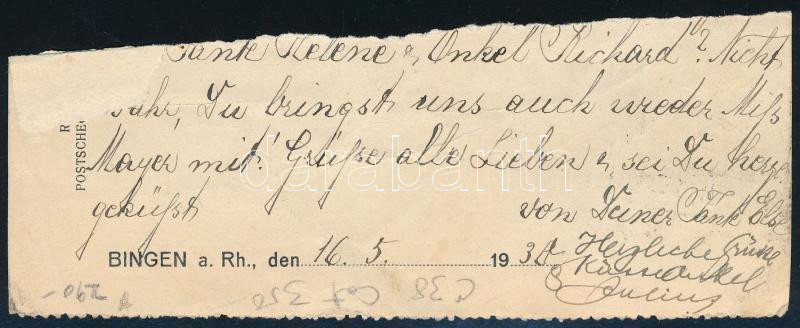 Tante Helene u. Onkel Richard? Nicht
wahr, Du bringst uns auch wieder Miß
Mayer mit! Grüße alle Lieben u. sei Du herz
geküßt von Deiner Tante Else
R
POSTSCHE
BINGEN a. Rh., den 16. 5. 193
Herzliche Grüsse
& Küsse Onkel
Julius
C38 Cat 350
290-
darabanth